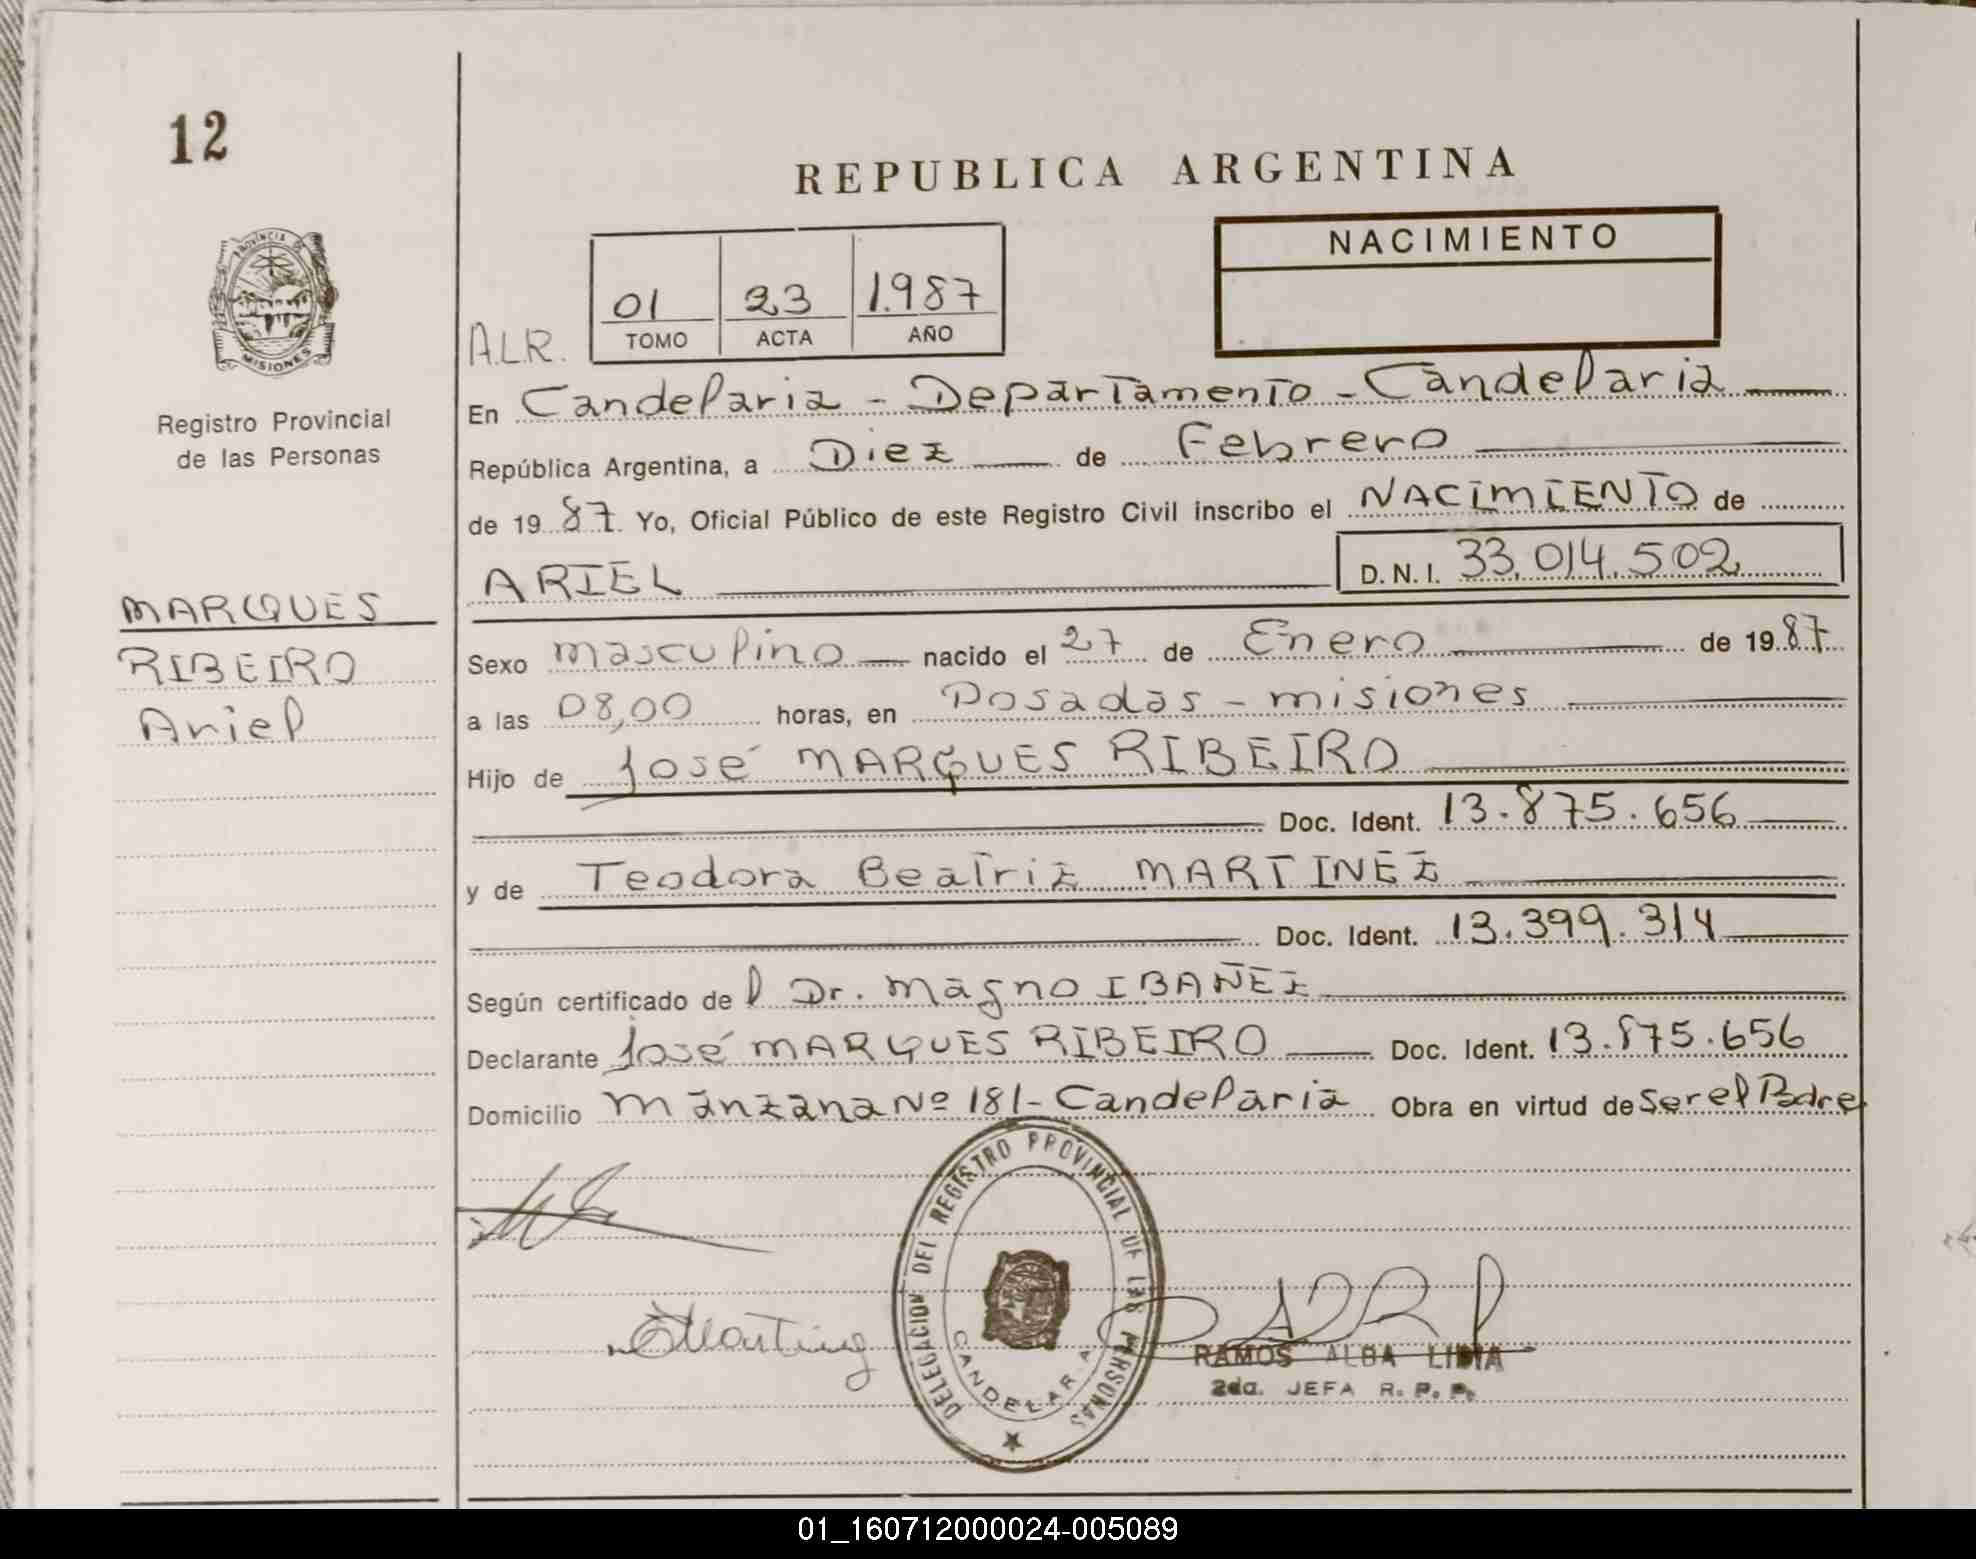 12
REPUBLICA ARGENTINA
NACIMIENTO
01 23 1.987
TOMO ACTA AÑO
A.L.R.
PROVINCIA DE MISIONES
Registro Provincial
de las Personas
En Candelaria - Departamento - Candelaria
República Argentina, a Diez de Febrero
de 1987. Yo, Oficial Público de este Registro Civil inscribo el NACIMIENTO de
ARIEL D.N.I. 33.014.502
MARQUES
RIBEIRO
Ariel
Sexo masculino nacido el 27 de Enero de 1987
a las 08,00 horas, en Posadas - misiones
Hijo de José MARQUES RIBEIRO
Doc. Ident. 13.875.656
y de Teodora Beatriz MARTINEZ
Doc. Ident. 13.399.314
Según certificado del Dr. Magno IBAÑEZ
Declarante José MARQUES RIBEIRO Doc. Ident. 13.875.656
Domicilio Manzana Nº 181- Candelaria Obra en virtud de Ser el Padre
DELEGACION DEL REGISTRO PROVINCIAL DE LAS PERSONAS
CANDELARIA
RAMOS ALBA LIDIA
2da. JEFA R. P. P.
01_160712000024-005089